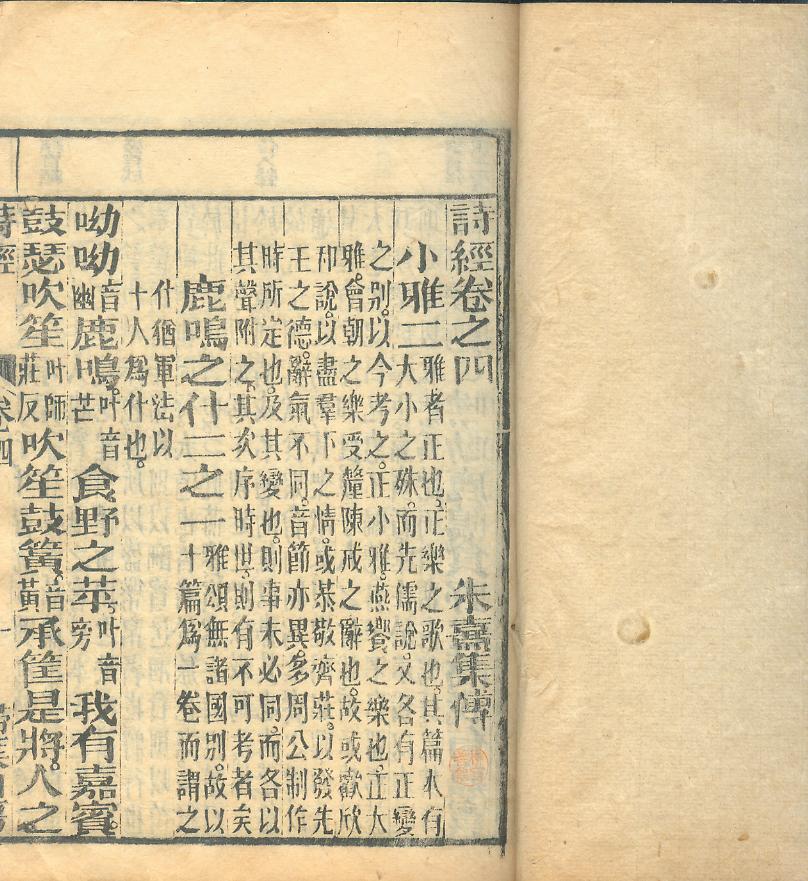 詩經卷之四
朱熹集傳
小雅二
雅者正也。正樂之歌也。其篇本有
大小之殊。而先儒說。又各有正變
之別。以今考之。正小雅。燕饗之樂也。正大
雅。會朝之樂受釐陳戒之辭也。故或歡欣
和說。以盡羣下之情。或恭敬齊莊。以發先
王之德。辭氣不同。音節亦異。多周公制作
時所定也。及其變也。則事未必同。而各以
其聲附之。其次序時世。則有不可考者矣
鹿鳴之什二之一
雅頌無諸國別。故以
十篇爲一卷而謂之
什猶軍法以
十人爲什也。
呦呦音幽鹿鳴。叶音芒食野之苹。叶音旁我有嘉賓。
鼓瑟吹笙叶師莊反吹笙鼓簧。音黃承筐是將。人之
詩經
卷四
一